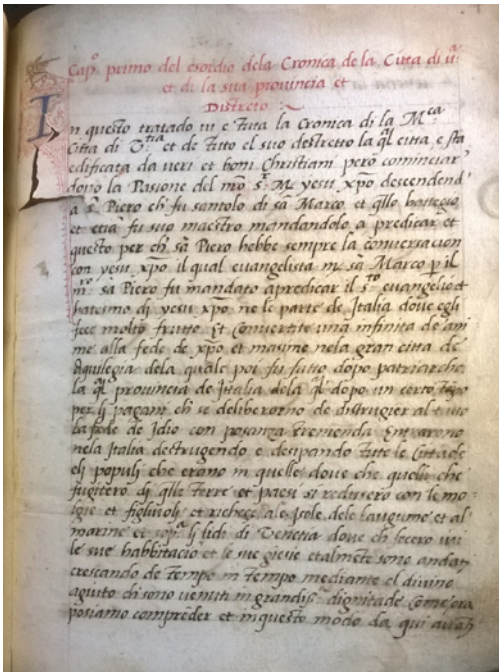 Capº primo del exordio dela Cronica de la Citta di v.ª
et di la sua provincia et
Distreto
In questo tratado vi e tuta la Cronica di la M.ca
Citta di V.tia et de tuto el suo destretto la q̃l citta e sta
edificata da veri et boni Christiani però cominciar
dopo la Passione del nrõ s.r M. yesu xp̃o descendend
a s. Piero ch̃ fu santolo di sã Marco et q̃llo battegio
et etiã fu suo maestro mandandolo a predicar et
questo per ch̃ sã Piero hebbe sempre la conversacion
con yesu xp̃o il qual evangelista m. sã Marco p̱ il
m.r sã Piero fu mandato apredicar il s.to evangelio et
batesmo di yesu xp̃o ne le parte de Italia dove egli
fece molto frutto. Et convertite una infinita de ani
me alla fede de xp̃o et maxime nela gran citta de
Aquilegia dela quale poi fu fatto dopo patriarcha
la q̃l provincia de Italia dela q̃l dopo un certo tẽpo
per li pagani ch̃ se deliberorno de distrugier al tuto
la fede de Idio con posanza tremenda Entrarono
nela Italia destrugendo e desipando tute le Cittade
eli populi che erono in quelle dove che quelli che
fugitero di q̃lle terre et paesi si redussero con le mo
glie et figliuoli et richeze ale Isole dele lagume et al
marine et sop.ª li lidi di Venetia dove ch̃ fecero ivi
le sue habbitacio et le sue giesie etalmẽte sono andati
crescando de tempo in tempo mediante el divino
agiuto ch̃ sono venuti in grandiss.ª dignitade Come ora
posiamo comprẽder et in questo modo da qui avãti